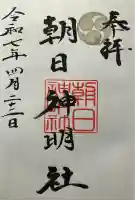 奉拝
朝日神明社
朝日神明社
令和七年四月二十一日